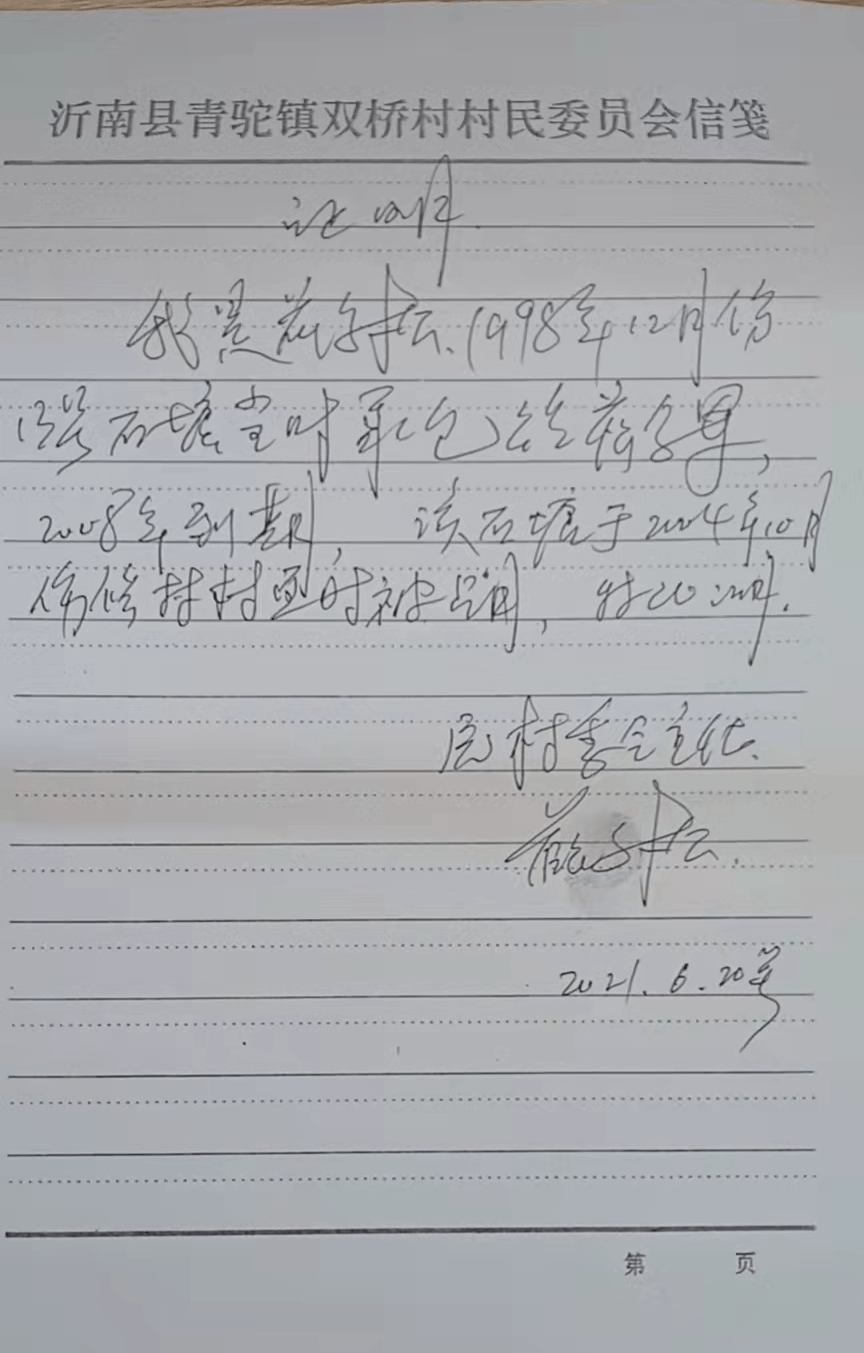 沂南县青驼镇双桥村村民委员会信笺
证明
我是 1998年12月份
石塘当时承包给
2008年到期,该石塘于2004年10月
份修村村通时被占用,特此证明.
原村委会主任
2021.6.20号
第 页